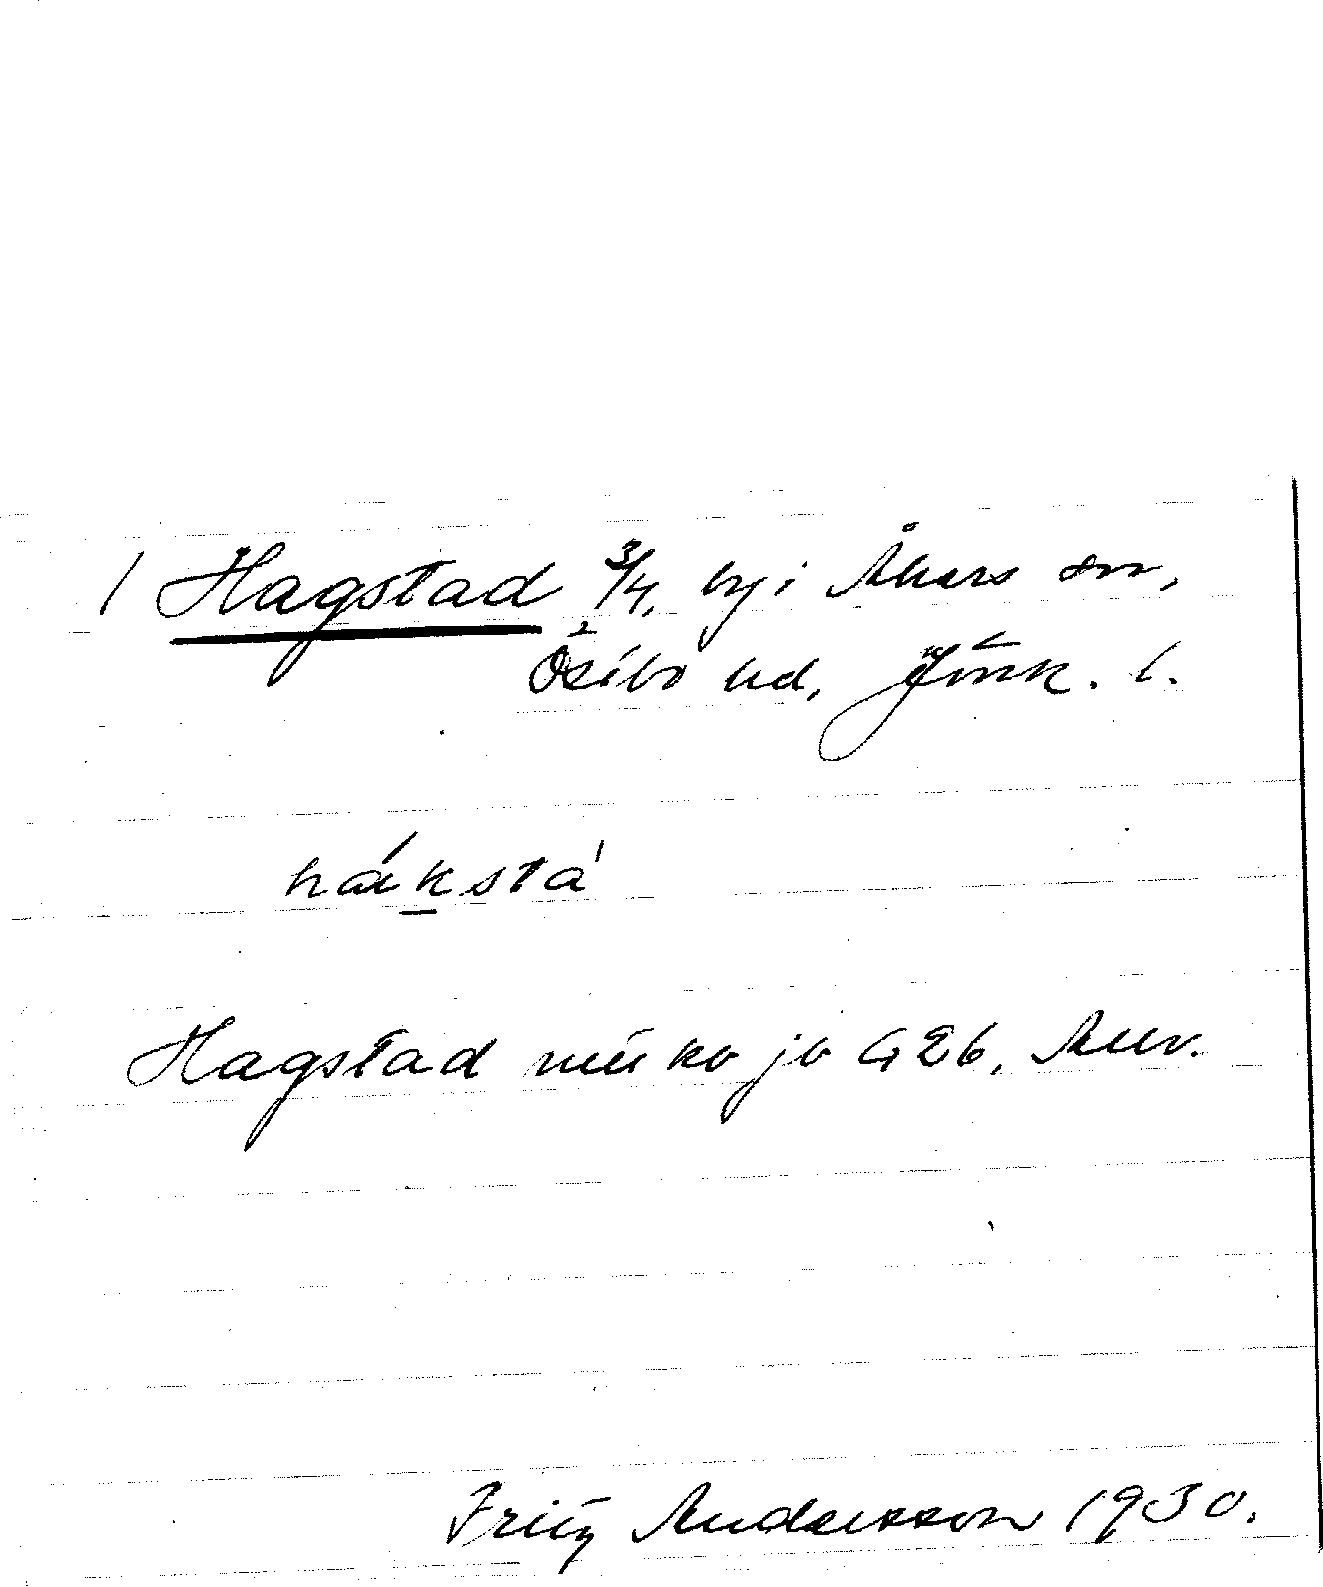 / Hagstad 3/4, by i Åkers sn,
Östbo hd, Jönk. l.
hákstá
Hagstad jb 426, Allm.
Fritz Andersson 1930.